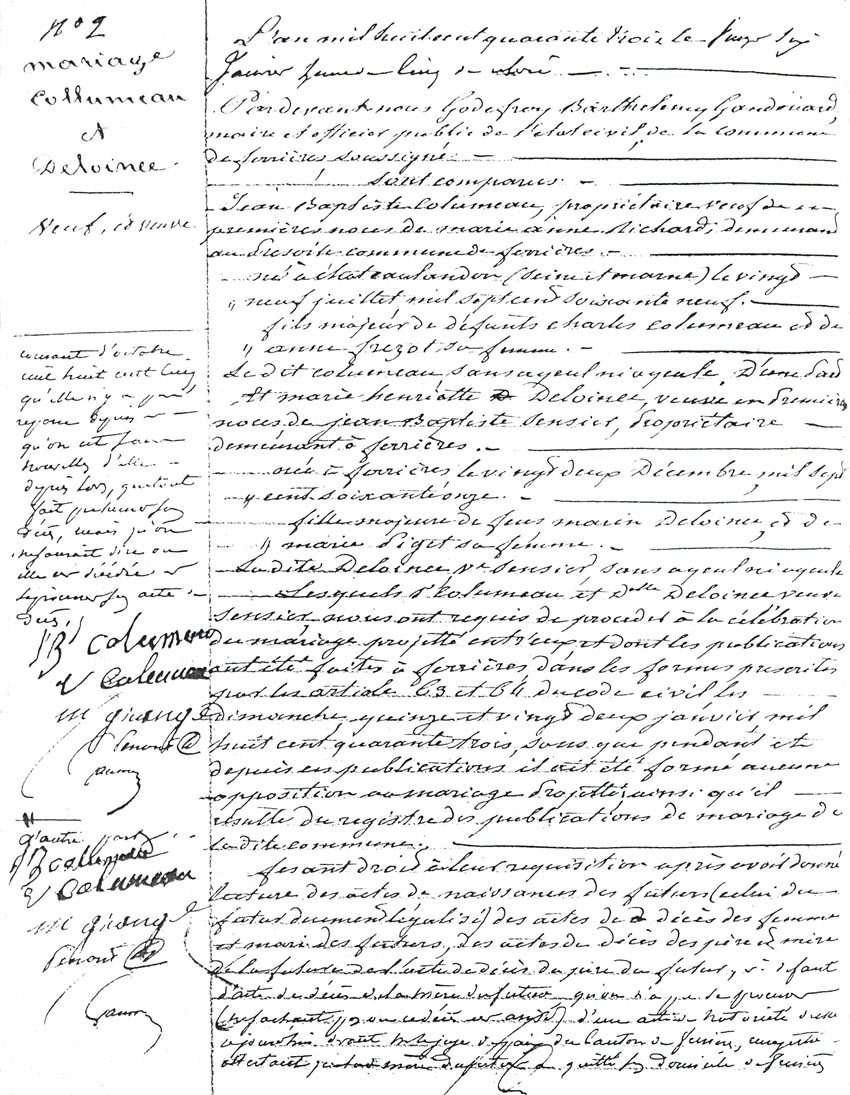 N° 2
mariage
Collumeau
et
Deloince
Veuf, et veuve
L'an mil huit cent quarante trois le vingt six
Janvier heure de cinq de
Pardevant nous Godefroy Barthelemy Gaudouard,
maire et officier public de l'état civil, de la commune
de ferrières soussigné.
sont comparus
Jean Baptiste Columeau, propriétaire veuf de en
premières noces de marie anne Richard, demeurant
au commune de ferrières.
né à chateaulandon (seine et marne) le vingt
" neuf juillet mil sept cent soixante neuf.
fils majeur de défunts Charles Columeau et de
" anne frezot sa femme.
Le dit Columeau sans ayeul ni ayeule, D'une part
Et marie henriette Deloince, veuve en première
noces de jean Baptiste Sensier, propriétaire
demeurant à ferrières.
née à ferrières le vingt deux Décembre, mil sept
" cent soixante onze.
fille majeure de feus marin Deloince, et de
" marie piget sa femme.
La dite Deloince Ve Sensier, sans ayeul ni ayeule
Lesquels sr Columeau et Delle Deloince veuve
Sensier nous ont requis de proceder à la célébration
du mariage projetté entr'eux et dont les publications
ont été faites à ferrières dans les formes prescrites
par les article 63 et 64 du code civil les
Dimanche, quinze et vingt deux janvier mil
huit cent quarante trois, sans que pendant et
depuis ces publications il ait été formé aucune
opposition au mariage projetté ainsi qu'il
résulte du registre des publications de mariage de
la dite commune.
fesant droit à leur requisition après avoir donné
lecture des actes de naissances des futurs (celui du
futur dument légalisé) des actes de décès des femme
et mari des futurs, des actes de décès des père et mère
de la future de l'acte de décès du père du futur, et à défaut
d'acte de décès de la mère du futur qu'on n'a pu se procurer
d'un acte de notoriété
aujourd'hui devant le juge de paix du Canton de ferrières,
attestant mère du futur a quitté son domicile de ferrières
courant d'octobre
mil huit cent cinq
qu'elle n'y a pas
reparu depuis
qu'on est sans
nouvelles d'elle
depuis lors, que tout
fait présumer son
décès, mais qu'on
ne saurait dire où
elle est décédée et
se procurer son acte
décès.
JB Columeau
V Columeau
m giange
d'autre part
JB Collumeau
V Columeau
m giange